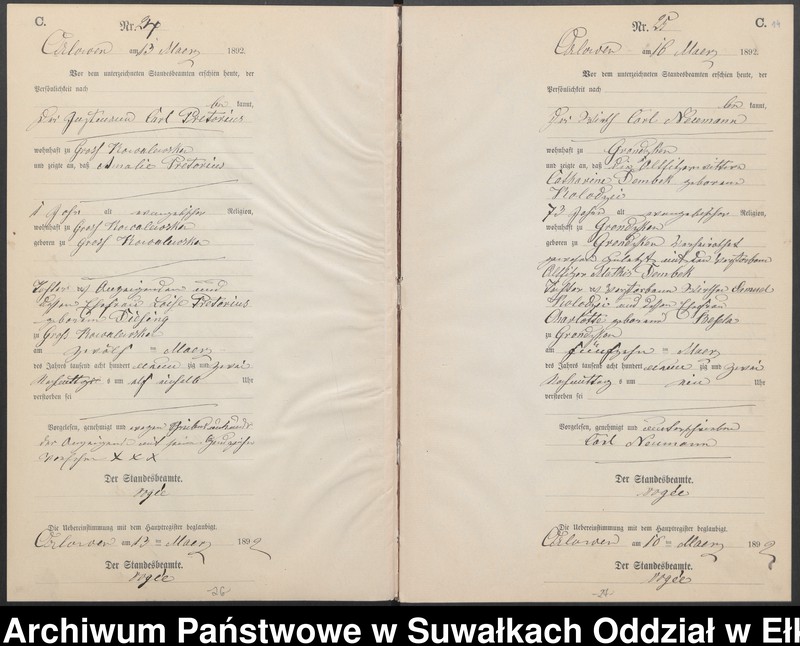 C.
Nr. 24
Czarlowen am 13 Maerz 1892.
Vor dem unterzeichneten Standesbeamten erschien heute, der
Persönlichkeit nach
be kannt,
der Carl Pretorius
wohnhaft zu Gross Kowalewsken
und zeigte an, daß Amalie Pretorius
1 Jahr alt evangelischer Religion,
wohnhaft zu Gross Kowalewsken
geboren zu Gross Kowalewsken
Tochter des Anzeigenden und
dessen Ehefrau Pretorius
geborenen
zu Gross Kowalewsken
am zwölf ten Maerz
des Jahres tausend acht hundert neun zig und zwei
Nachmittags um elf einhalb Uhr
verstorben sei
Vorgelesen, genehmigt und wegen
der Anzeigende mit seinem Handzeichen
versehen X X X
Der Standesbeamte.
Rogée
Die Uebereinstimmung mit dem Hauptregister beglaubigt.
am 13 ten Maerz 1892
Der Standesbeamte.
Rogée
-26-
C.
Nr. 25
am 16 Maerz 1892.
Vor dem unterzeichneten Standesbeamten erschien heute, der
Persönlichkeit nach
be kannt,
der Wirth Carl Neumann
wohnhaft zu Grondzken
und zeigte an, daß die Altsitzerwittwe
Catharine Dembek geborene
Kolodzei
73 Jahre alt evangelischer Religion,
wohnhaft zu Grondzken
geboren zu Grondzken verheirathet
gewesen zuletzt mit dem verstorbenen
Altsitzer Mathes Dembek
Tochter des verstorbenen Wirthen Samuel
Kolodzei und dessen Ehefrau
Charlotte geborenen
zu Grondzken
am fünfzehn ten Maerz
des Jahres tausend acht hundert neun zig und zwei
Nachmittag s um ein Uhr
verstorben sei
Vorgelesen, genehmigt und unterschrieben
Carl Neumann
Der Standesbeamte.
Rogée
Die Uebereinstimmung mit dem Hauptregister beglaubigt.
am 16 ten Maerz 1892
Der Standesbeamte.
Rogée
Archiwum Państwowe w Suwałkach Oddział w Eł